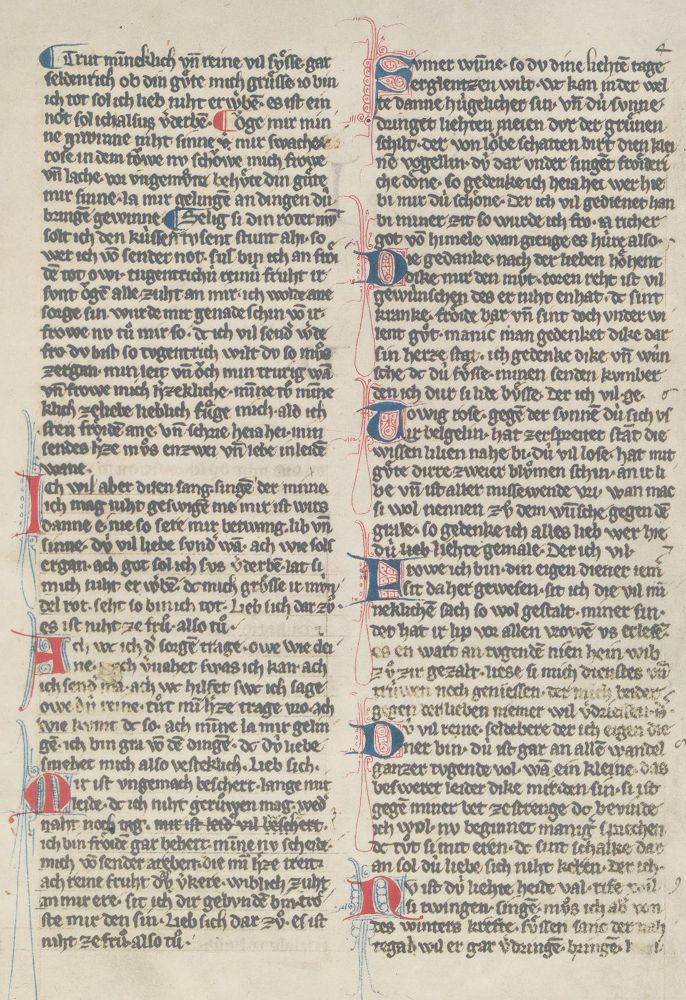 Trut mīneklich vn̄ reine vil sv̊sse gar
seldenrich ob din gv̊te mich grv̊sse io bin
ich tot sol ich lieb niht erw̾bē· es ist ein
not sol ich alsus v̾derbē·
ne niht sinne mir swaches
rose in dem towe nv schowe mich frowe
vn̄ lache· vor vngemv̊te behv̊te din gv̊te
mir sinne· la mir gelingē an dingen dū
bringē gewinne· Selig si din roter
solt ich den kūssen tvsent stunt ald· so
wer ich vō sender not· sus bin ich an frōi
dē tot owi· tugentrichū reinū fruht ir
sunt ōgē alle· zuht an mir· ich wolde ane
sorge sin wurde mir genade schin vō ir·
frowe nv tū mir so· dc ich vil send w̾de
fro dv bist so tvgentrich wilt dv so mv̊s
zergan· min leit vn̄ ōch min trurig wā
vn̄ frowe mich h̾zekliche· mīne rv̊ mīne
klich ze liebe lieblich fūge mich· ald ich
sten frōidē ane· vn̄ schrie heia hei· min
sendes h̾ze mv̊s enzwei vn̄ lebe in leide
wane·
Ich wil aber disen sang singē der mīne
ich mag niht geswigē me mir ist wirs
danne e· nie so sere mir betwang· lib vn̄
sinne· dv̊ vil liebe svnd̾ wā· ach wie sols
ergan· ach got sol ich svs v̾derbē lat si
mich niht erw̾bē· dc mich grv̊sse ir mvn
del rot· seht so bin ich tot· Lieb sich dar zv̊·
es ist niht ze frū· also tū·
Ach wc ich d̾ sorgen trage· owe wie dei
ne· ach v̾nahet swas ich kan· ach
ich send̾ mā· ach wc hilfet swc ich sage
owe dū reine· tūt mī h̾ze trage no· ach
wie kvmt dc so· ach mīne la mir gelin
gē· ich bin gra vō dē dingē· dc dv̊ liebe
smehet mich also vesteklich· Lieb sich·
Mir ist vngemach beschert· lange mit
leide· dc ich niht gerūwen mag· wed̾
naht noch tag· mir ist leid vil beschert·
ich bin frōide gar behert· mīne nv scheide
mich vō sender arebeit· die mī h̾ze treit·
ach reine fruht dv̊ v̾kere· wiblich zuht
an mir ere· sit ich dir gebvndē bin· trō
ste mir den sin· Lieb sich dar zv̊· es ist
niht ze frū· also tū·
4
Svmer wūne· so dv dine liehtē tage
erglentzen wilt· wc kan in der wel
te danne hūgelicher sin· vn̄ dū svnne
dringet liehten meien dvr der grūnen
schilt· der von lōbe schatten birt dien klei
nē vogellin· dv̊ dar vnder singēt frōideri
che dōne· so gedenke ich heia hei wer hie
bi mir dū schōne· Der ich vil gedienet han
bi miner zit so wurde ich fro· ia richer
got vō himele wan gienge es hūre also·
Die gedanke· nach der lieben hōhent
dike mir den mv̊t· toren reht ist vil
gewūnschen des er niht enhat· dc sint
kranke· frōide har vn̄ sint doch vnder wi
lent gv̊t· manic man gedenket dike dar
sin herze stat· ich gedenke dike vn̄ wūn
sche dc dū sv̊sse· minen senden kvmber
den ich dur si lide bv̊sse· Der ich vil ge·
Towig rose· gegē der svnnen dū sich vs
ir belgelin· hat zerspreitet stāt die
wissen lilien nahe bi· dū vil lose· hat mit
gv̊te dirre zweier blv̊men schin· an ir li
be vn̄ ist aller missewende vri· wan mac
si wol nennen zv̊ dem wūnsche gegen dē
grale· so gedenke ich alles lieb wer hie
dū lieb liehte gemale· Der ich vil·
Frowe ich bin· din eigen diener iem̾
sit da her gewesen· sit ich die vil mī
neklichen sach so wol gestalt· miner sin·
der hat ir lip vor allen vrowē vs erlesē·
es en wart an tvgenden nien hein wib
zv̊ zir gezalt· liese si mich dienstes vn̄
trūwen noch geniessen· der mich beider
gegen der lieben niemer wil v̾driessen·
Dv̊ vil reine· seldebere der ich eigen die
ner bin· dū ist gar an allē wandel
ganzer tvgende vol· wā ein kleine· das
beswert leider dike mir den sin· si ist
gegē miner bet ze strenge dc bevinde
ich wol· nv beginnet manig̾ sprechen
dc tv̊t si mit eren· dc sint schalke dar
an sol dū liebe sich niht keren· Der ich·
Nv ist dv̊ liehte heide val· rife
si twingen· singē· mv̊s ich ab von
des winters krefte· sv̊ssen sanc der nah
tegal wil er gar v̾dringē· bringē·